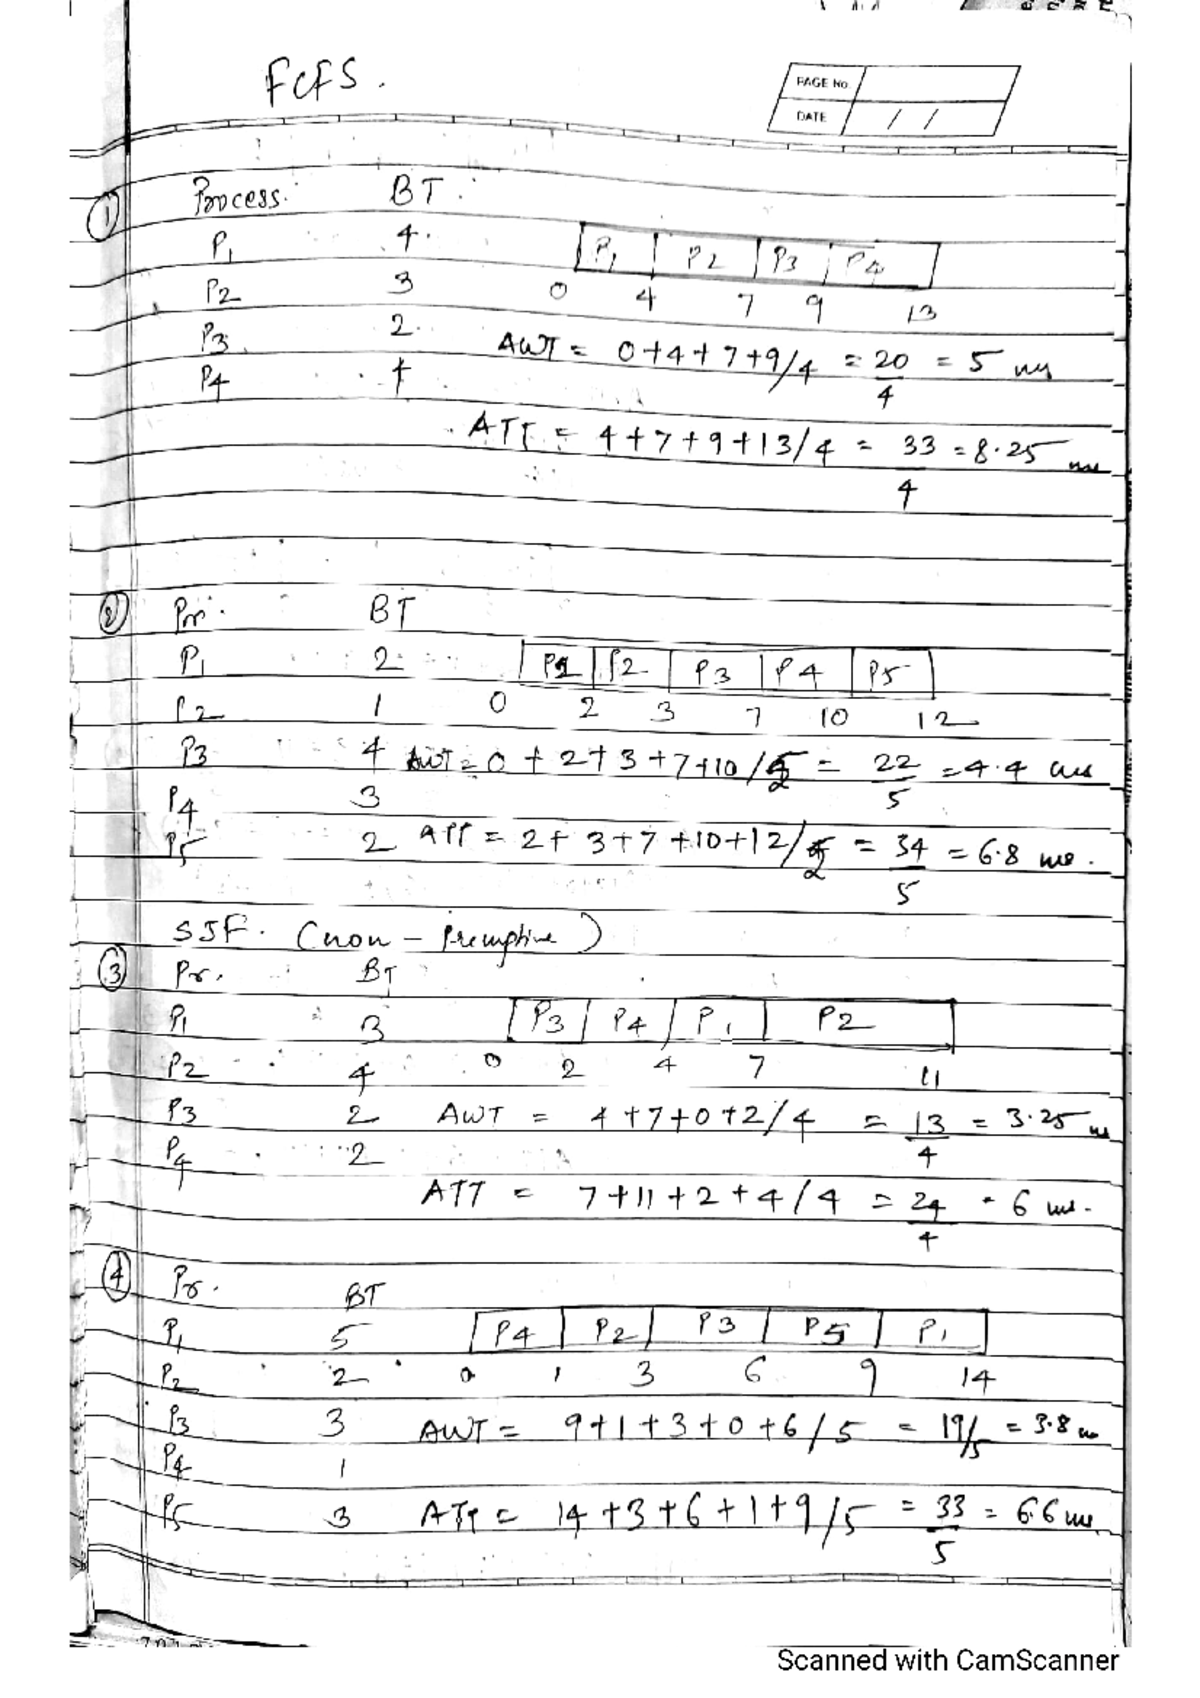 FCFS.
PAGE No.
DATE / /
① Process. BT.
P1 4. P1 P2 P3 P4
P2 3 0 4 7 9 13
P3 2. AWT = 0+4+7+9/4 = 20/4 = 5 ms
P4 4
ATT = 4+7+9+13/4 = 33/4 = 8.25 ms
② Pr. BT
P1 2 P1 P2 P3 P4 P5
P2 1 0 2 3 7 10 12
P3 4 AWT = 0+2+3+7+10/5 = 22/5 = 4.4 ms
P4 3
P5 2 ATT = 2+3+7+10+12/5 = 34/5 = 6.8 ms.
SJF. (non - Premptive)
③ Pr. BT
P1 3 P3 P4 P1 P2
P2 4 0 2 4 7 11
P3 2 AWT = 4+7+0+2/4 = 13/4 = 3.25 ms
P4 2
ATT = 7+11+2+4/4 = 24/4 = 6 ms.
④ Pr. BT
P1 5 P4 P2 P3 P5 P1
P2 2 0 1 3 6 9 14
P3 3 AWT = 9+1+3+0+6/5 = 19/5 = 3.8 ms
P4 1
P5 3 ATT = 14+3+6+1+9/5 = 33/5 = 6.6 ms.
Scanned with CamScanner